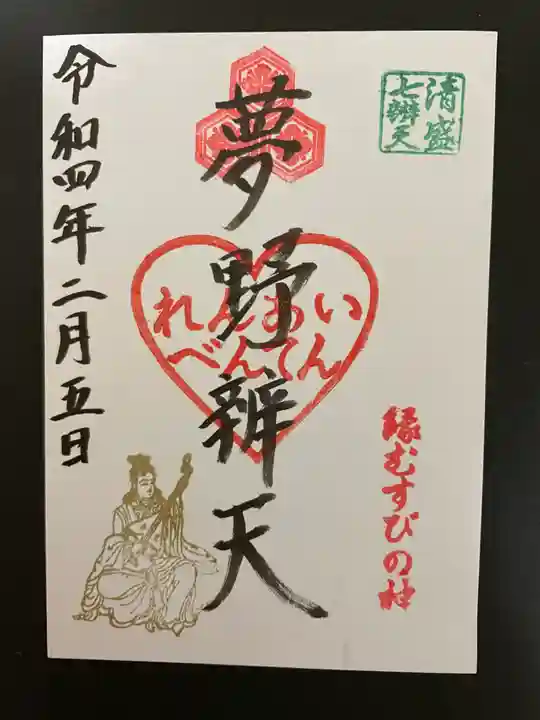 清盛
七辨天
縁むすびの社
夢野辨天
れんあい
べんてん
令和四年二月五日